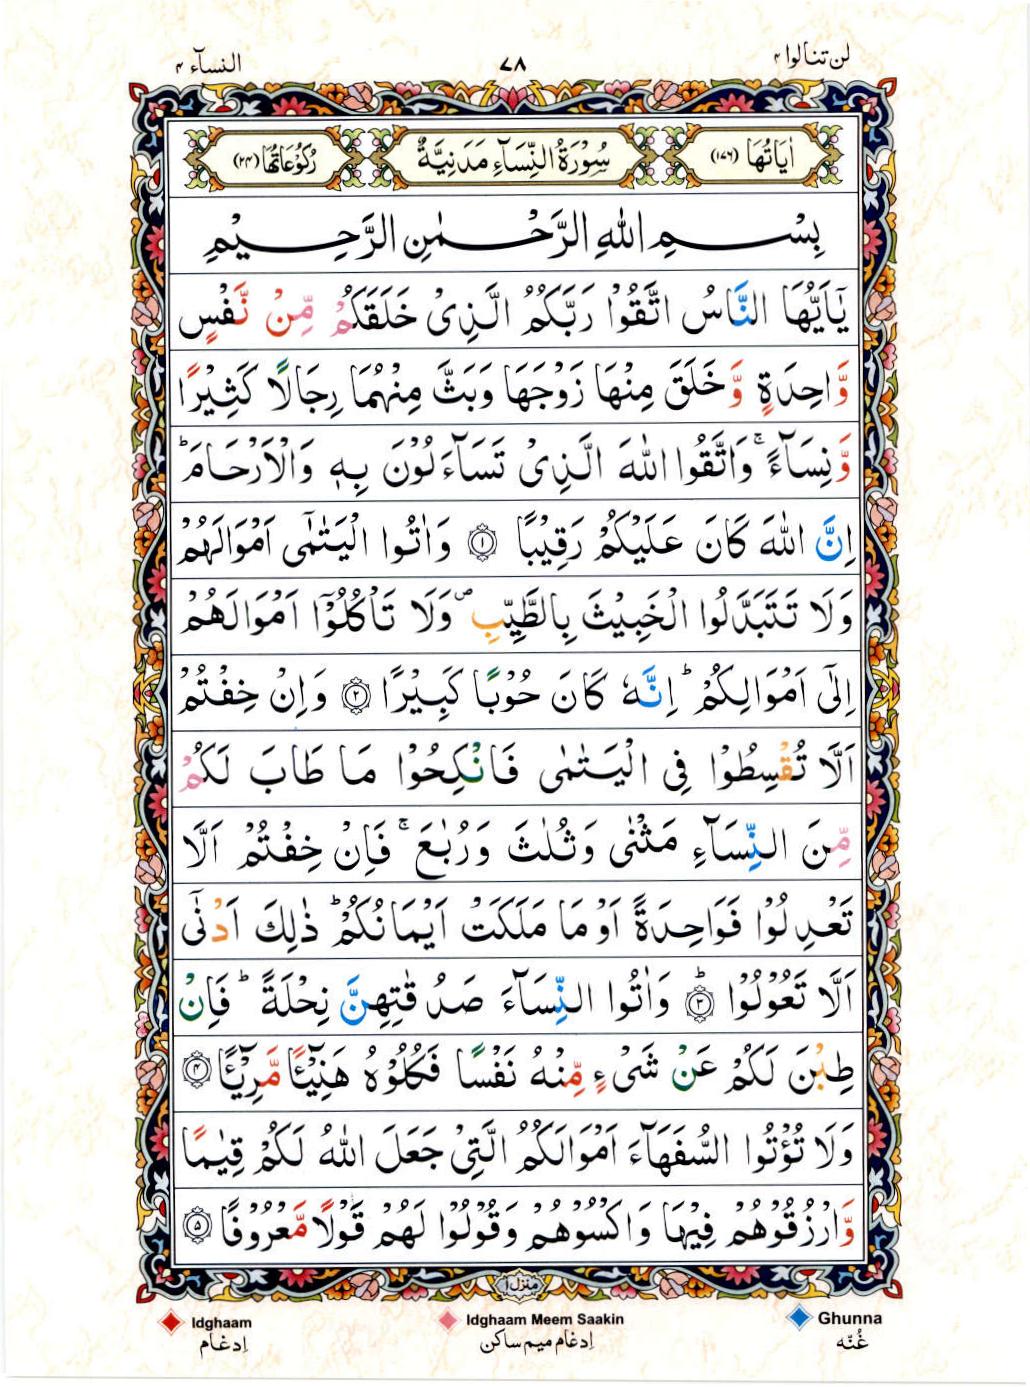 لن تنالوا ۴
۷۸
النسآء ۴
اٰيَاتُهَا (۱۷۶)
سُوْرَةُ النِّسَآءِ مَدَنِيَّةٌ
رُكُوْعَاتُهَا (۲۴)
بِسْمِ اللهِ الرَّحْمٰنِ الرَّحِيْمِ
يٰۤاَيُّهَا النَّاسُ اتَّقُوْا رَبَّكُمُ الَّذِىْ خَلَقَكُمْ مِّنْ نَّفْسٍ
وَّاحِدَةٍ وَّخَلَقَ مِنْهَا زَوْجَهَا وَبَثَّ مِنْهُمَا رِجَالًا كَثِيْرًا
وَّنِسَآءً ۚ وَاتَّقُوا اللهَ الَّذِىْ تَسَآءَلُوْنَ بِهٖ وَالْاَرْحَامَ ؕ
اِنَّ اللهَ كَانَ عَلَيْكُمْ رَقِيْبًا ۱ وَاٰتُوا الْيَتٰمٰٓى اَمْوَالَهُمْ
وَلَا تَتَبَدَّلُوا الْخَبِيْثَ بِالطَّيِّبِ ۪ وَلَا تَاْكُلُوْۤا اَمْوَالَهُمْ
اِلٰٓى اَمْوَالِكُمْ ؕ اِنَّهٗ كَانَ حُوْبًا كَبِيْرًا ۲ وَاِنْ خِفْتُمْ
اَلَّا تُقْسِطُوْا فِى الْيَتٰمٰى فَانْكِحُوْا مَا طَابَ لَكُمْ
مِّنَ النِّسَآءِ مَثْنٰى وَثُلٰثَ وَرُبٰعَ ۚ فَاِنْ خِفْتُمْ اَلَّا
تَعْدِلُوْا فَوَاحِدَةً اَوْ مَا مَلَكَتْ اَيْمَانُكُمْ ؕ ذٰلِكَ اَدْنٰٓى
اَلَّا تَعُوْلُوْا ؕ ۳ وَاٰتُوا النِّسَآءَ صَدُقٰتِهِنَّ نِحْلَةً ؕ فَاِنْ
طِبْنَ لَكُمْ عَنْ شَىْءٍ مِّنْهُ نَفْسًا فَكُلُوْهُ هَنِيْٓئًا مَّرِيْٓئًا ۴
وَلَا تُؤْتُوا السُّفَهَآءَ اَمْوَالَكُمُ الَّتِىْ جَعَلَ اللهُ لَكُمْ قِيٰمًا
وَّارْزُقُوْهُمْ فِيْهَا وَاكْسُوْهُمْ وَقُوْلُوْا لَهُمْ قَوْلًا مَّعْرُوْفًا ۵
منزل ۱
Ghunna
غُنّه
Idghaam Meem Saakin
اِدغام میم ساکن
Idghaam
اِدغام